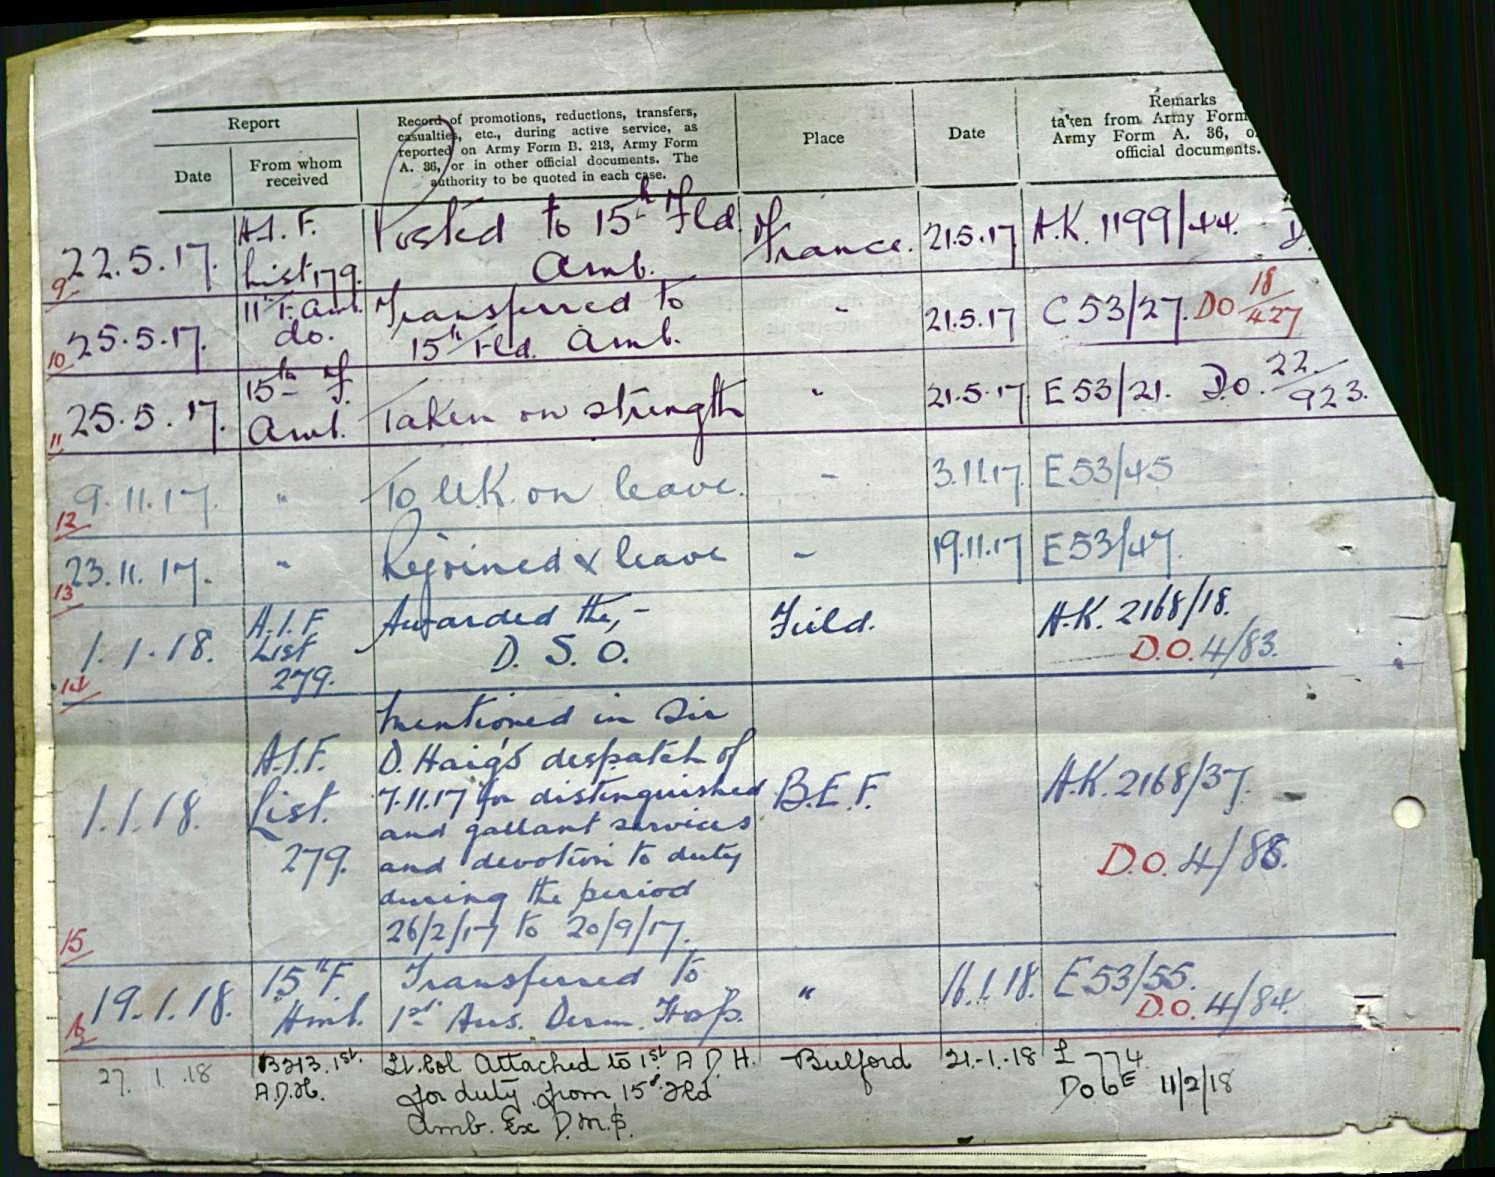 Report
Date
From whom
received
Record of promotions, reductions, transfers,
casualties, etc., during active service, as
reported on Army Form B. 213, Army Form
A. 36, or in other official documents. The
authority to be quoted in each case.
Place
Date
Remarks
taken from Army Form
Army Form A. 36, o
official documents.
9 22.5.17. A.I.F. Posted to 15th Fld France. 21.5.17 A.K. 1199/44. D.
List 179. Amb.
10 25.5.17. 11th F. Amb. Transferred to " 21.5.17 C 53/27. DO 18/427
do. 15th Fld. Amb.
11 25.5.17. 15th F. Taken on strength " 21.5.17 E 53/21. D.O. 22/923.
Amb.
12 9.11.17. " To U.K. on leave. " 3.11.17. E 53/45
13 23.11.17. " Rejoined x leave " 19.11.17 E 53/47.
14 1.1.18. A.I.F Awarded the, - Field. A.K. 2168/18.
List D. S. O. D.O. 4/83.
279.
Mentioned in Sir
A.I.F. D. Haig's despatch of
15 1.1.18. List. 7.11.17 for distinguished B.E.F. A.K. 2168/37.
and gallant services
279. and devotion to duty D.O. 4/88.
during the period
26/2/17 to 20/9/17.
16 19.1.18. 15th F. Transferred to " 16.1.18. E 53/55.
Amb. 1st Aus. Derm. Hosp. D.O. 4/84.
27. 1 .18 B213. 1st. Lt. Col Attached to 1st A D. H. Bulford 21-1-18 L 774
A.D.H. for duty from 15th Fld Do 6E 11/2/18
Amb. Ex D.M.S.